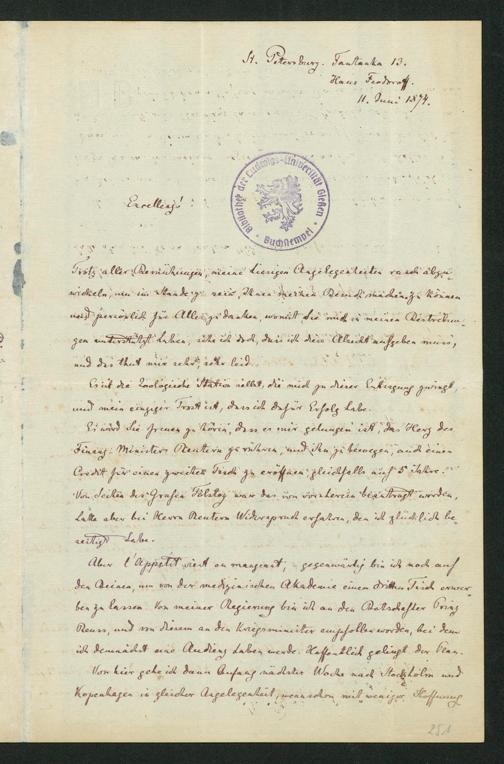 St. Petersburg. Fontanka 13.
Haus Feodoroff.
11. Juni 1874.
Bibliothek der Ludwigs-Universität Gießen
Buchstempel
Excellenz!
Trotz aller Bemühungen, meine hiesigen Angelegenheiten rasch abzu-
wickeln, um im Stande zu sein, Ihnen meinen Besuch machen zu können
und persönlich für Alles zu danken, womit Sie mich in meinen Bestrebun-
gen unterstützt haben, sehe ich doch, dass ich diese Absicht aufgeben muss,
und das thut mir sehr, sehr leid.
Es ist die Zoologische Station selbst, die mich zu dieser Entsagung zwingt,
und mein einziger Trost ist, dass ich dafür Erfolg habe.
Es wird Sie freuen zu hören, dass es mir gelungen ist, das Herz des
Finanz-Ministers Reutern zu rühren, und ihn zu bewegen, auch einen
Credit für einen zweiten Tisch zu eröffnen, gleichfalls auf 5 Jahre.
Von Seiten des Grafen Tolstoy war das von vornherein beantragt worden,
hatte aber bei Herrn Reutern Widerspruch erfahren, den ich glücklich be-
seitigt habe.
Aber l'appétit vient en mangeant; gegenwärtig bin ich noch auf
den Beinen, um von der medizinischen Akademie einen dritten Tisch erwer-
ben zu lassen. Von meiner Regierung bin ich an den Botschafter Prinz
Reuss, und von diesem an den Kriegsminister empfohlen worden, bei dem
ich demnächst eine Audienz haben werde. Hoffentlich gelingt der Plan.
Von hier gehe ich dann Anfang nächster Woche nach Stockholm und
Kopenhagen in gleicher Angelegenheit, wennschon mit weniger Hoffnung
251